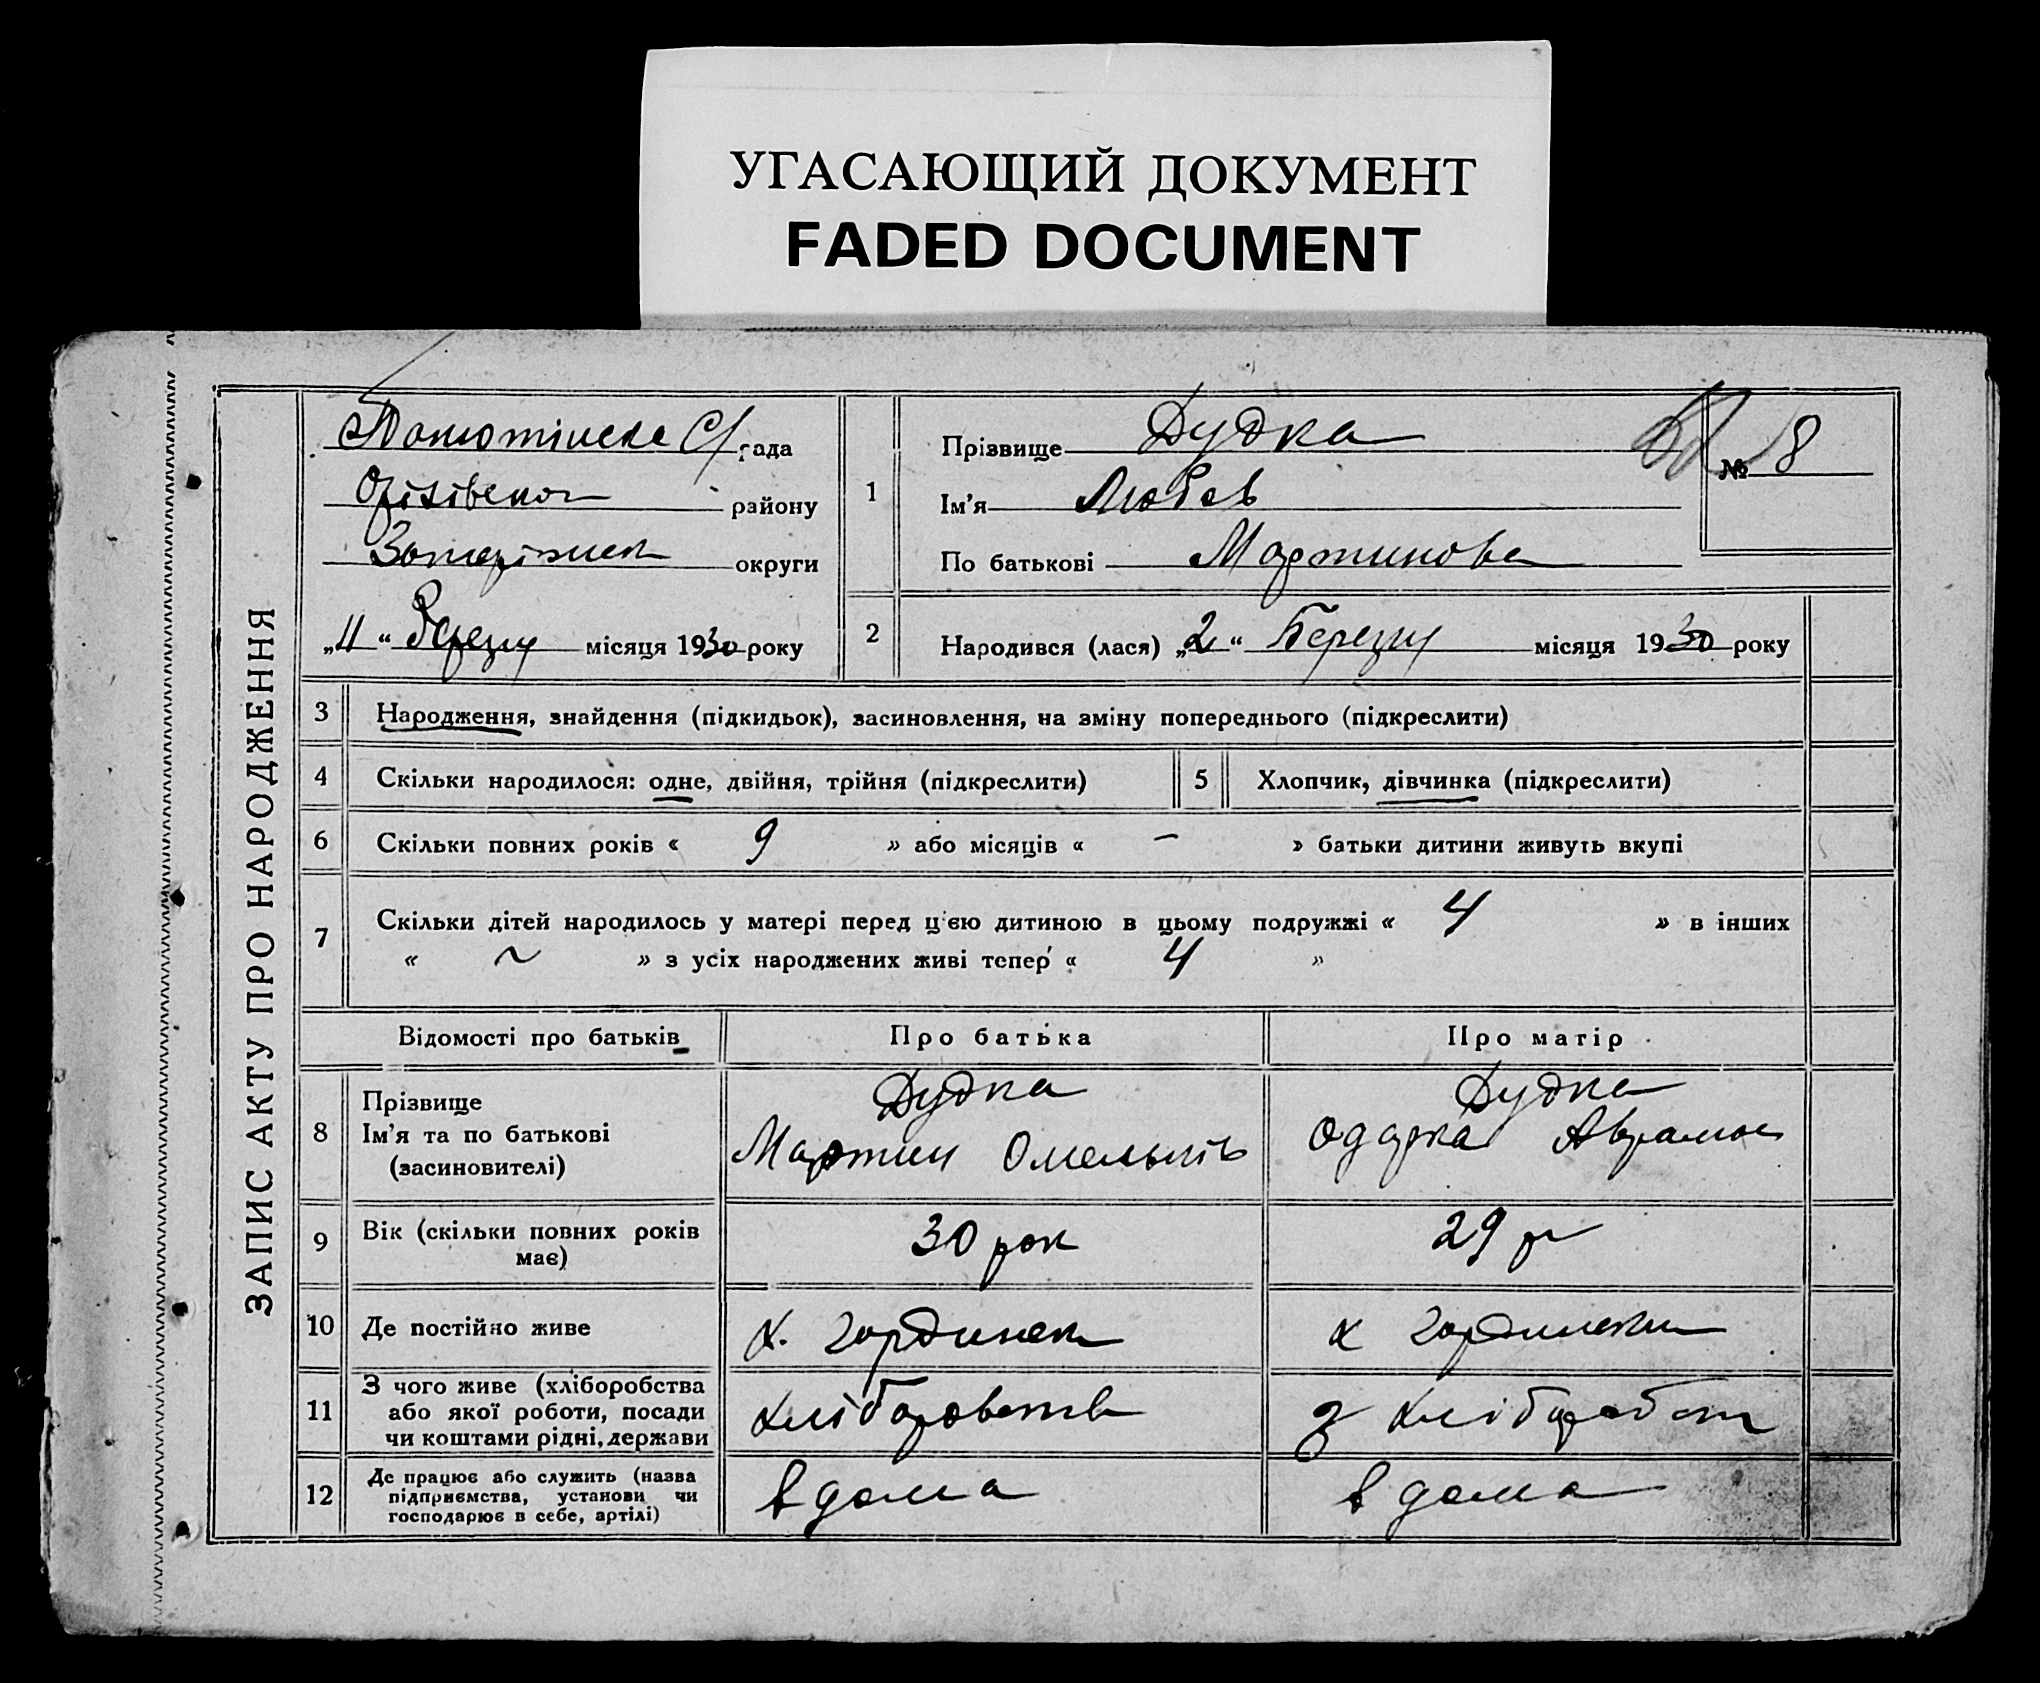 УГАСАЮЩИЙ ДОКУМЕНТ
FADED DOCUMENT
ЗАПИС АКТУ ПРО НАРОДЖЕННЯ
С/рада
району
округи
„11“ Березня місяця 1930 року
№ 8
1
Прізвище Дудка
Ім'я Любов
По батькові Мартинова
2
Народився (лася) „2“ Березня місяця 1930 року
3 Народження, знайдення (підкидьок), засиновлення, на зміну попереднього (підкреслити)
4 Скільки народилося: одне, двійня, трійня (підкреслити)
5 Хлопчик, дівчинка (підкреслити)
6 Скільки повних років « 9 » або місяців « – » батьки дитини живуть вкупі
7 Скільки дітей народилось у матері перед ц'єю дитиною в цьому подружжі « 4 » в інших
« ~ » з усіх народжених живі тепер « 4 »
Відомості про батьків Про батька Про матір
8 Прізвище
Ім'я та по батькові
(засиновителі)
Дудка
Мартин
Дудка
Одарка
9 Вік (скільки повних років
має)
30 рок
29 р
10 Де постійно живе
х.
х
11 З чого живе (хліборобства
або якої роботи, посади
чи коштами рідні, держави
з
12 Де працює або служить (назва
підприємства, установи чи
господарює в себе, артілі)
вдома
вдома